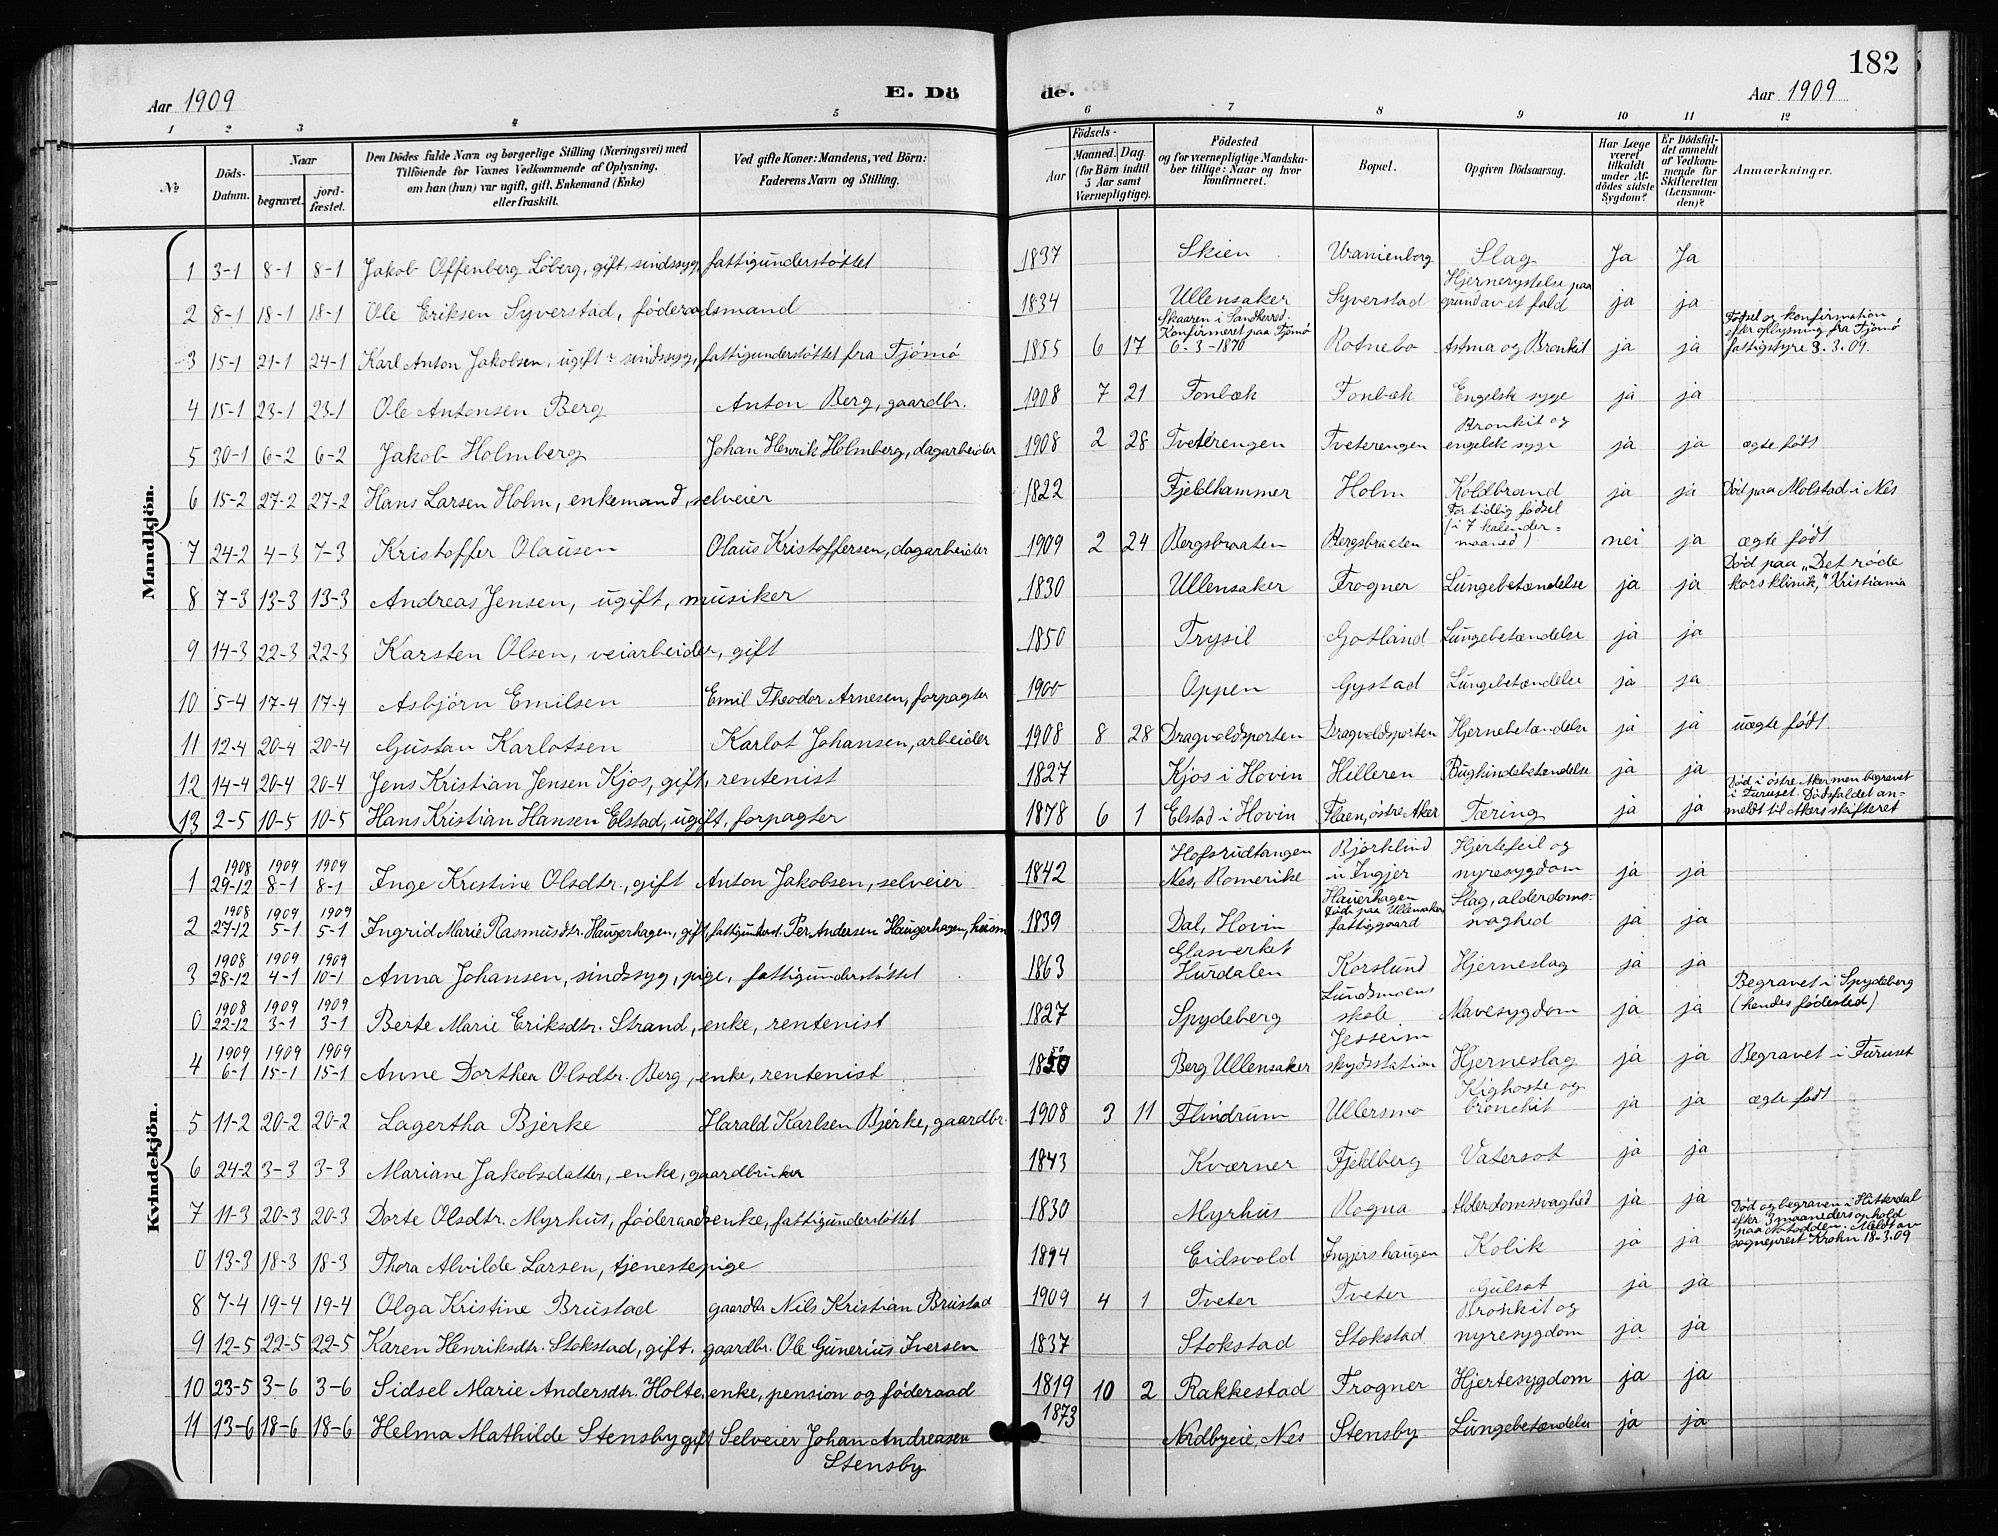 182
Aar 1909
E. Döde.
Aar 1909
1 2 3 4 5 6 7 8 9 10 11 12
№
Döds-Datum.
Naar
begravet.
jord-fæstet.
Den Dödes fulde Navn og borgerlige Stilling (Næringsvei) med
Tilföiende for Voxnes Vedkommende af Oplysning,
om han (hun) var ugift, gift, Enkemand (Enke)
eller fraskilt.
Ved gifte Koner: Mandens, ved Börn:
Faderens Navn og Stilling.
Födsels-
Aar
Maaned. Dag
(for Börn indtil
5 Aar samt
Værnepligtige).
Födested
og for værnepligtige Mandska-
ber tillige: Naar og hvor
konfirmeret.
Bopæl.
Opgiven Dödsaarsag.
Har Læge
været
tilkaldt
under Af-
dödes sidste
Sygdom?
Er Dödsfal-
det anmeldt
af Vedkom-
mende for
Skifteretten
(Lensman-
den)?
Anmærkninger.
Mandkjön.
1 3-1 8-1 8-1 Jakob Offenberg Löberg, gift, sindssyg, fattigunderstöttet 1837 Skien Uranienborg Slag Ja Ja
2 8-1 18-1 18-1 Ole Eriksen Syverstad, föderaadsmand 1834 Ullensaker Syverstad Hjernerystelse paa grund av et fald ja ja
3 15-1 21-1 24-1 Karl Anton Jakobsen, ugift, sindssyg, fattigunderstöttet fra Tjömö 1855 6 17 Skaaren i Sandherred. Konfirmeret paa Tjömö 6-3-1870 Rotnebo Astma og Bronkit ja ja Födsel og konfirmation efter oplysning fra Tjömö fattigstyre 3.3.09.
4 15-1 23-1 23-1 Ole Antonsen Berg Anton Berg, gaardbr. 1908 7 21 Fonbæk Fonbæk Engelsk syge ja ja
5 30-1 6-2 6-2 Jakob Holmberg Johan Henrik Holmberg, dagarbeider 1908 2 28 Tveterengen Tveterengen Bronkit og engelsk syge ja ja ægte født
6 15-2 27-2 27-2 Hans Larsen Holm, enkemand, selveier 1822 Fjeldhammer Holm Koldbrand ja ja Død paa Molstad i Nes
7 24-2 4-3 7-3 Kristoffer Olausen Olaus Kristoffersen, dagarbeider 1909 2 24 Bergsbraaten Bergsbraaten For tidlig födsel (i 7 kalendermaaned) nei ja ægte født
8 7-3 13-3 13-3 Andreas Jensen, ugift, musiker 1830 Ullensaker Frogner Lungebetændelse ja ja Død paa "Det røde kors klinik," Kristiania
9 14-3 22-3 22-3 Karsten Olsen, veiarbeider, gift 1850 Trysil Gotland Lungebetændelse ja ja
10 5-4 17-4 17-4 Asbjörn Emilsen Emil Theodor Arnesen, forpagter 1900 Oppen Gystad Lungebetændelse ja ja
11 12-4 20-4 20-4 Gustav Karlotsen Karlot Johansen, arbeider 1908 8 28 Dragvoldsporten Dragvoldsporten Hjernebetændelse ja ja uægte født
12 14-4 20-4 20-4 Jens Kristian Jensen Kjos, gift, rentenist 1827 Kjos i Hovin Hilleren Bughindebetændelse ja ja
13 2-5 10-5 10-5 Hans Kristian Hansen Elstad, ugift, forpagter 1878 6 1 Elstad i Hovin Flaen, östre Aker Tæring ja ja Död i östre Aker men begravet i Furuset. Dödsfaldet anmeldt til Akers skifteret
Kvindekjön.
1 1908 29-12 1909 8-1 1909 8-1 Inge Kristine Olsdtr., gift Anton Jakobsen, selveier 1842 Hofsrudtangen Nes, Romerike Björklund i Ingjer Hjertefeil og nyresygdom ja ja
2 1908 27-12 1909 5-1 1909 5-1 Ingrid Marie Rasmusdtr. Haugerhagen, gift, fattigunderst. Per Andersen Haugerhagen, husm 1839 Dal, Hovin Hauerhagen död paa Ullensaker fattiggaard Slag, alderdomssvaghed ja ja
3 1908 28-12 1909 4-1 1909 10-1 Anna Johansen, sindssyg, pige, fattigunderstöttet 1863 Glasverket Hurdalen Korslund Hjerneslag ja ja
0 1908 22-12 1909 3-1 1909 3-1 Berte Marie Eriksdtr. Strand, enke, rentenist 1827 Spydeberg Lundsmoens skole Mavesygdom ja ja Begravet i Spydeberg (hendes födested)
4 1909 6-1 1909 15-1 1909 15-1 Anne Dorthea Olsdtr. Berg, enke, rentenist Berg Ullensaker Jesseim skydsstation Hjerneslag ja ja Begravet i Furuset
5 11-2 20-2 20-2 Lagertha Bjerke Harald Karlsen Bjerke, gaardbr. 1908 3 11 Flindrum Ullersmo Kighoste og bronckit ja ja ægte født
6 24-2 3-3 3-3 Mariane Jakobsdatter, enke, gaardbruker 1843 Kværner Fjeldberg Vatersot ja ja
7 11-3 20-3 20-3 Dorte Olsdtr. Myrhus, föderaadsenke, fattigunderstöttet 1830 Myrhus Rogna Alderdomssvaghed ja ja
0 13-3 18-3 18-3 Thora Alvilde Larsen, tjenestepige 1894 Eidsvold Ingjershaugen Kolik ja ja Död og begraven i Hitterdal efter 3 maaneders ophold paa Notodden. Meldt av sogneprest Krohn 18-3.09
8 7-4 19-4 19-4 Olga Kristine Brustad gaardbr Nils Kristian Brustad 1909 4 1 Tveter Tveter Gulsot ja ja
9 12-5 22-5 22-5 Karen Henriksdtr. Stokstad, gift. gaardbr. Ole Gunerius Iversen 1837 Stokstad Stokstad Bronkit og nyresygdom ja ja
10 23-5 3-6 3-6 Sidsel Marie Andersdtr. Holte, enke, pension og föderaad 1819 10 2 Rakkestad Frogner Hjertesygdom ja ja
11 13-6 18-6 18-6 Helma Mathilde Stensby gift Selveier Johan Andreasen Stensby 1873 Nordbyeie, Nes Stensby Lungebetændelse ja ja